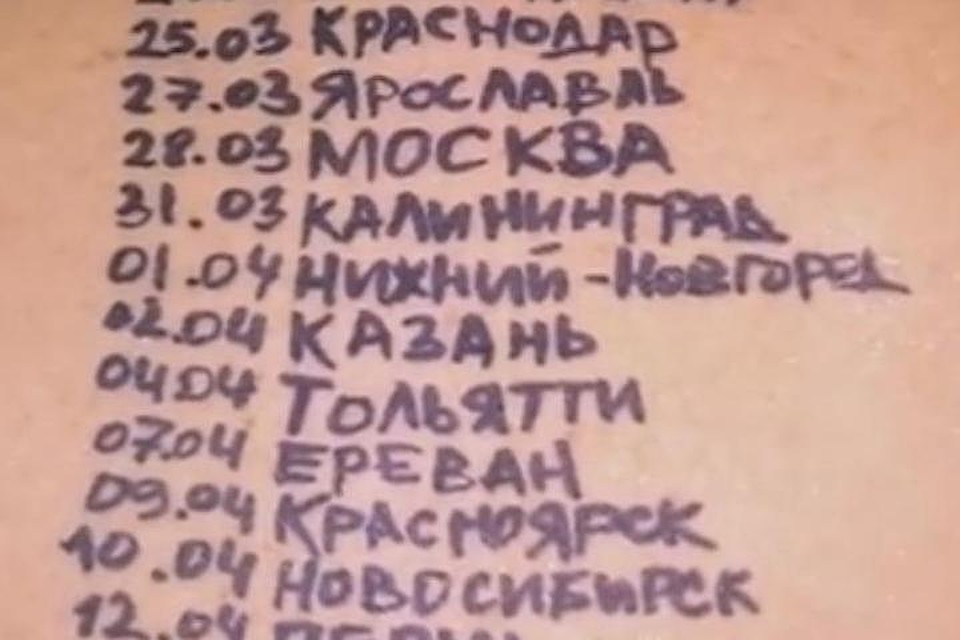 25.03 КРАСНОДАР
27.03 ЯРОСЛАВЛЬ
28.03 МОСКВА
31.03 КАЛИНИНГРАД
01.04 НИЖНИЙ-НОВГОРОД
02.04 КАЗАНЬ
04.04 ТОЛЬЯТТИ
07.04 ЕРЕВАН
09.04 КРАСНОЯРСК
10.04 НОВОСИБИРСК
12.04